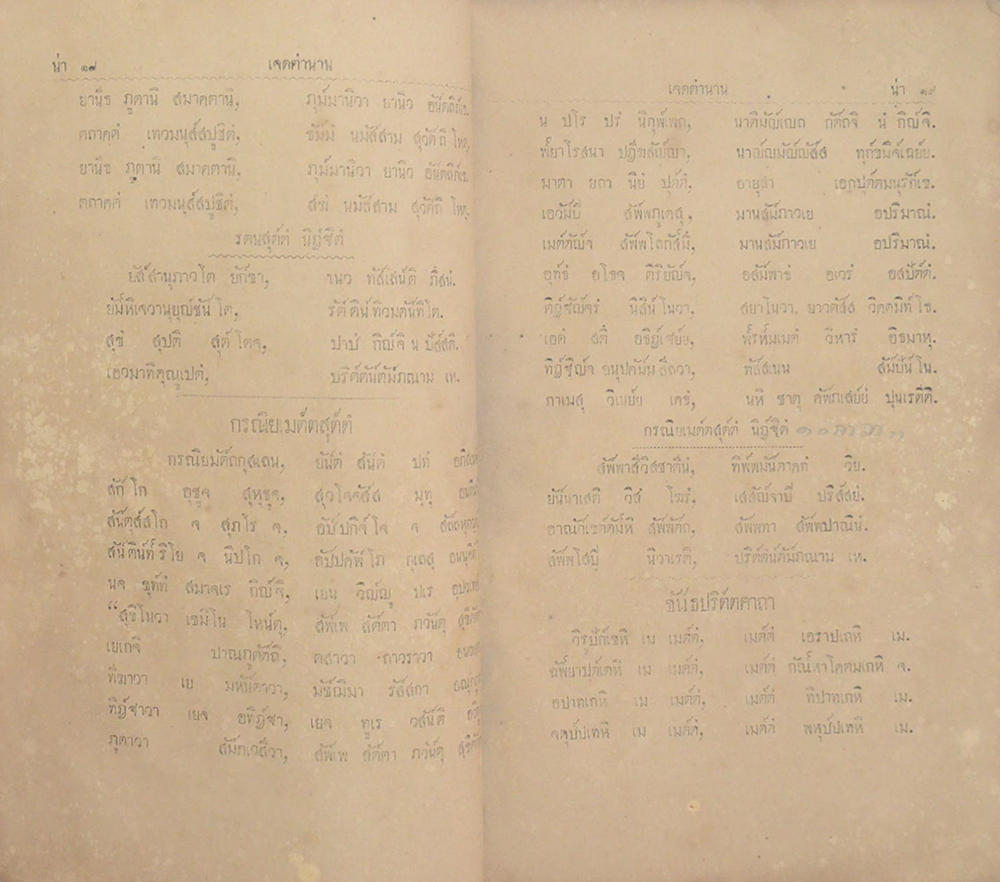 น่า ๑๘ เจดตำนาน
ยานีธ ภูตานิ สมาคตานิ, ภุมฺมานิวา ยานิว
ตถาคตํ เทวมนุสฺสปูชิตํ, ธมฺมํ นมสฺสาม สุวตฺถิ โหตุ,
ยานีธ ภูตานิ สมาคตานิ, ภุมฺมานิวา ยานิว
ตถาคตํ เทวมนุสฺสปูชิตํ, สงฺฆํ นมสฺสาม สุวตฺถิ โหตุ,
รตนสุตฺตํ นิฏฺฐิตํ
ยสฺสานุภาวโต ยกฺขา, เนว ทสฺเสนฺติ ภึสนํ.
ยมฺหิเจวานุยุญฺชนฺโต, รตฺตินฺทิวมตนฺทิโต.
สุขํ สุปติ สุตฺโตจ, ปาปํ กิญฺจิ น ปสฺสติ.
เอวมาทิคุณูเปตํ, ปริตฺตนฺตมฺภณาม เห.
กรณียเมตฺตสุตฺตํ
กรณียมตฺถกุสเลน, ยนฺตํ สนฺตํ ปทํ
สกฺโก อุชูจ สุหุชูจ, สุวโจจสฺส มุทุ
สนฺตุสฺสโก จ สุภโร จ, อปฺปกิจฺโจ จ
สนฺตินฺทฺริโย จ นิปโก จ, อปฺปคพฺโภ กุเลสุ
นจ ขุทฺทํ สมาจเร กิญฺจิ, เยน วิญฺญู ปเร
“สุขิโนวา เขมิโน โหนฺตุ, สพฺเพ สตฺตา ภวนฺตุ
เยเกจิ ปาณภูตตฺถิ, ตสาวา ถาวราวา
ทีฆาวา เย มหนฺตาวา, มชฺฌิมา รสฺสกา
ทิฏฺฐาวา เยจ อทิฏฺฐา, เยจ ทูเร วสนฺติ
ภูตาวา สมฺภเวสีวา, สพฺเพ สตฺตา ภวนฺตุ
เจดตำนาน น่า ๑๙
น ปโร ปรํ นิกุพฺเพถ, นาติมญฺเญถ กตฺถจิ นํ กิญฺจิ.
พฺยาโรสนา ปฏีฆสญฺญา, นาญฺญมญฺญสฺส ทุกฺขมิจฺเฉยฺย.
มาตา ยถา นิยํ ปุตฺตํ, อายุสา เอกปุตฺตมนุรกฺเข.
เอวมฺปิ สพฺพภูเตสุ, มานสมฺภาวเย อปริมาณํ.
เมตฺตญฺจ สพฺพโลกสฺมึ, มานสมฺภาวเย อปริมาณํ.
อุทฺธํ อโธจ ติริยญฺจ, อสมฺพาธํ อเวรํ อสปตฺตํ.
ติฏฺฐญฺจรํ นิสินฺโนวา, สยาโนวา ยาวตสฺส วิคตมิทฺโธ.
เอตํ สตึ อธิฏฺเฐยฺย, พฺรหฺมเมตํ วิหารํ อิธมาหุ.
ทิฏฺฐิญฺจ อนุปคมฺม สีลวา, ทสฺสเนน สมฺปนฺโน.
กาเมสุ วิเนยฺย เคธํ, นหิ ชาตุ คพฺภเสยฺยํ ปุนเรตีติ.
กรณียเมตฺตสุตฺตํ นิฏฺฐิตํ
สพฺพาสีวิสชาตีนํ, ทิพฺพมนฺตาคทํ วิย.
ยนฺนาเสติ วิสํ โฆรํ, เสสญฺจาปิ ปริสฺสยํ.
อาณกฺเขตฺตมฺหิ สพฺพตฺถ, สพฺพทา สพฺพปาณินํ.
สพฺพโสปิ นิวาเรติ, ปริตฺตนฺตมฺภณาม เห.
ขันธปริตฺตคาถา
วิรูปกฺเขหิ เม เมตฺตํ, เมตฺตํ เอราปเถหิ เม.
ฉพฺยาปุตฺเตหิ เม เมตฺตํ, เมตฺตํ กณฺหาโคตมเกหิ จ.
อปาทเกหิ เม เมตฺตํ, เมตฺตํ ทิปาทเกหิ เม.
จตุปฺปเทหิ เม เมตฺตํ, เมตฺตํ พหุปฺปเทหิ เม.